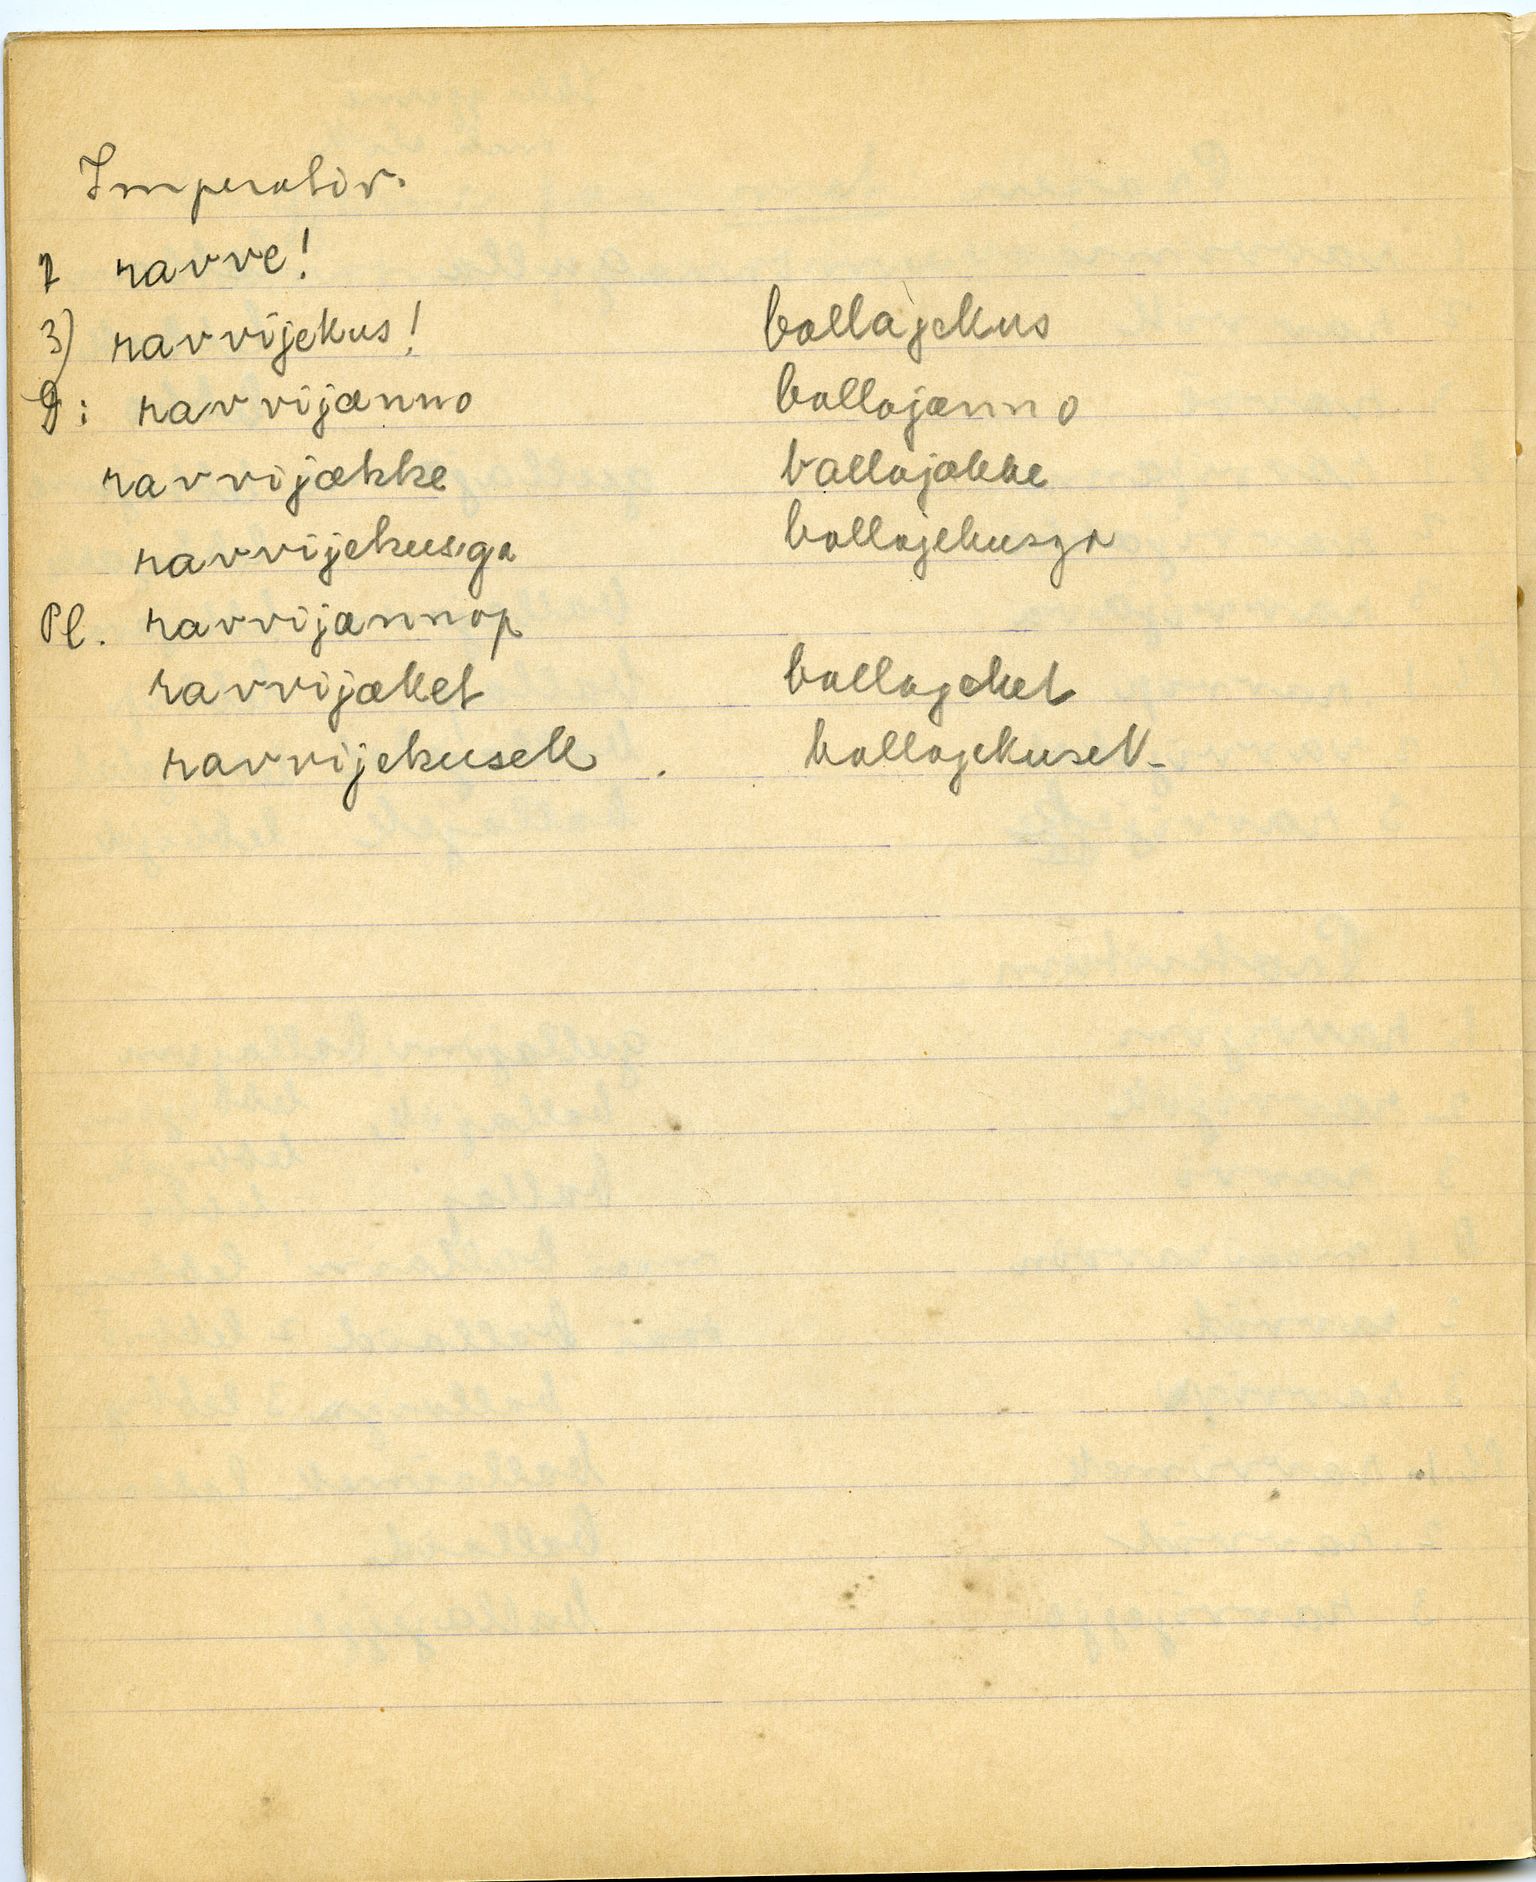 Imperativ.
2 ravve!
3) ravvijekus! ballajekus
D: ravvijænno ballajænno
ravvijække ballajække
ravvijekusga ballajekusga
Pl. ravvijænnop
ravvijæket ballajeket
ravvijekusek . ballajekusek-